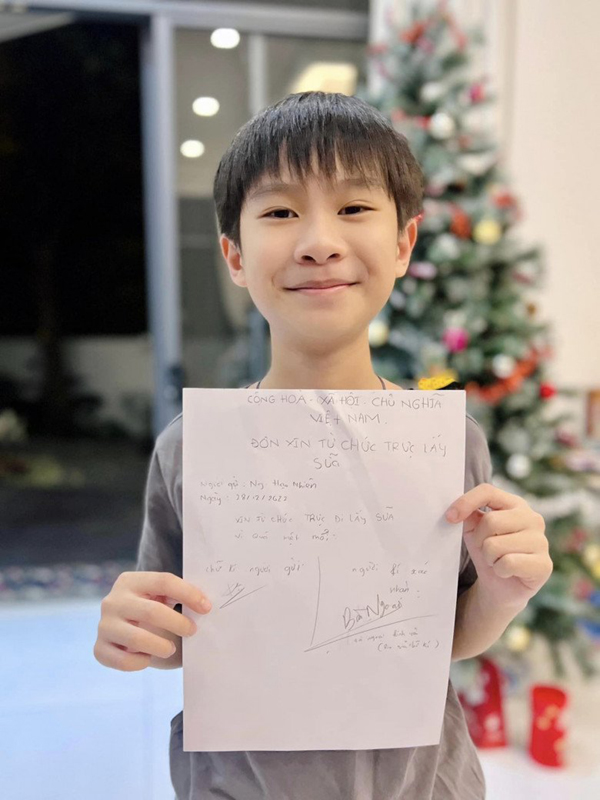 CÔNG HOÀ - XÃ HỘI - CHỦ NGHĨA
VIỆT NAM.
ĐƠN XIN TỪ CHỨC TRỰC LẤY
SỮA
Người gửi:
Ngày: 28/12/2023
XIN TỪ CHỨC TRỰC ĐI LẤY SỮA
vì quá mệt mỏi.
chữ kí người gửi
người kí xác
nhận:
Bà Ngoại